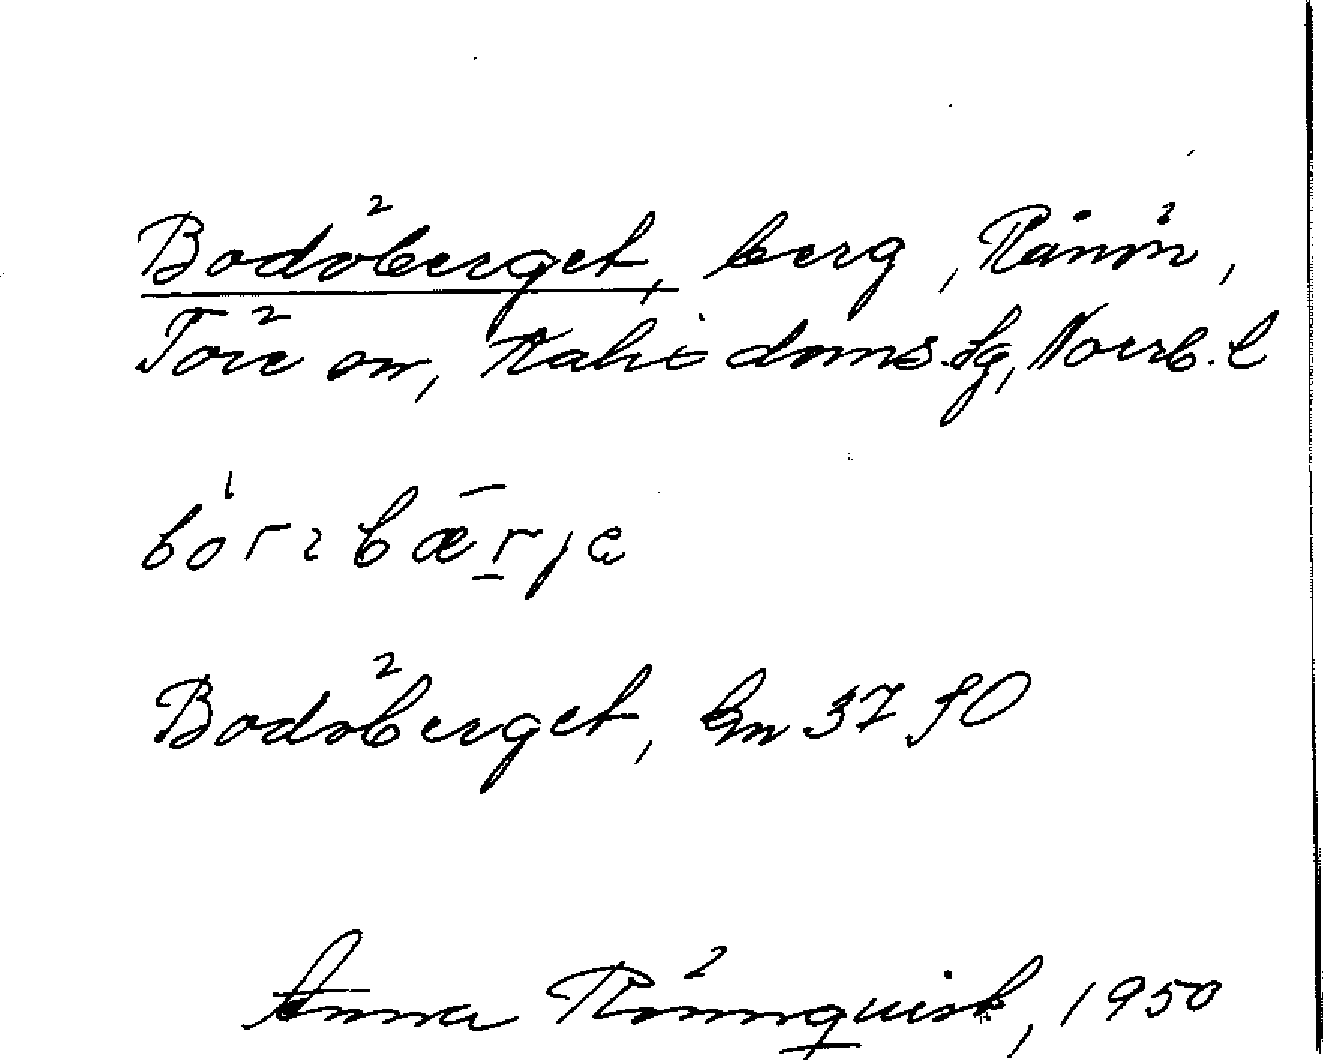 Bodöberget, berg, Rånön,
Töre sn, Kalix doms.sg, Norrb. l
Bodöberget, Gn 3790
Anna Rönnquist, 1950